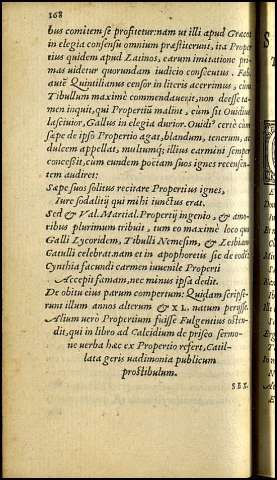 168
bus comitem se profitetur: nam ut illi apud Græcos
in elegia consensu omnium præstiterunt, ita Proper
tius quidem apud Latinos, earum imitatione pri-
mas uidetur quorundam iudicio consecutus. Fabi
autē Quintilianus censor in literis acerrimus, cum
Tibullum maximè commendauerit, non deesse ta-
men inquit, qui Propertiū malint, cùm sit Ouidius
lasciuior, Gallus in elegia durior. Ouidiꝰ certè cùm
sæpe de ipso Propertio agat, blandum, tenerum, ac
dulcem appellat, multumq; illius carmini semper
concessit, cùm eundem poetam suos ignes recensen-
tem audiret:
Sæpe suos solitus recitare Propertius ignes,
Iure sodalitij qui mihi iunctus erat.
Sed & Val. Martial. Propertij ingenio, & amo-
ribus plurimum tribuit, tum eo maximè loco quo
Galli Lycoridem, Tibulli Nemesim, & Lesbiam
Catulli celebrat. nam et in apophoretis sic de eodē:
Cynthia facundi carmen iuuenile Properti
Accepit famam, nec minus ipsa dedit.
De obitu eius parum compertum: Quidam scripse-
runt illum annos alterum & XL. natum perijsse.
Alium uerò Propertium fuisse Fulgentius osten-
dit, qui in libro ad Calcidium de prisco sermo-
ne uerba hæc ex Propertio refert, Catil-
lata geris uadimonia publicum
prostibulum.
SEX.